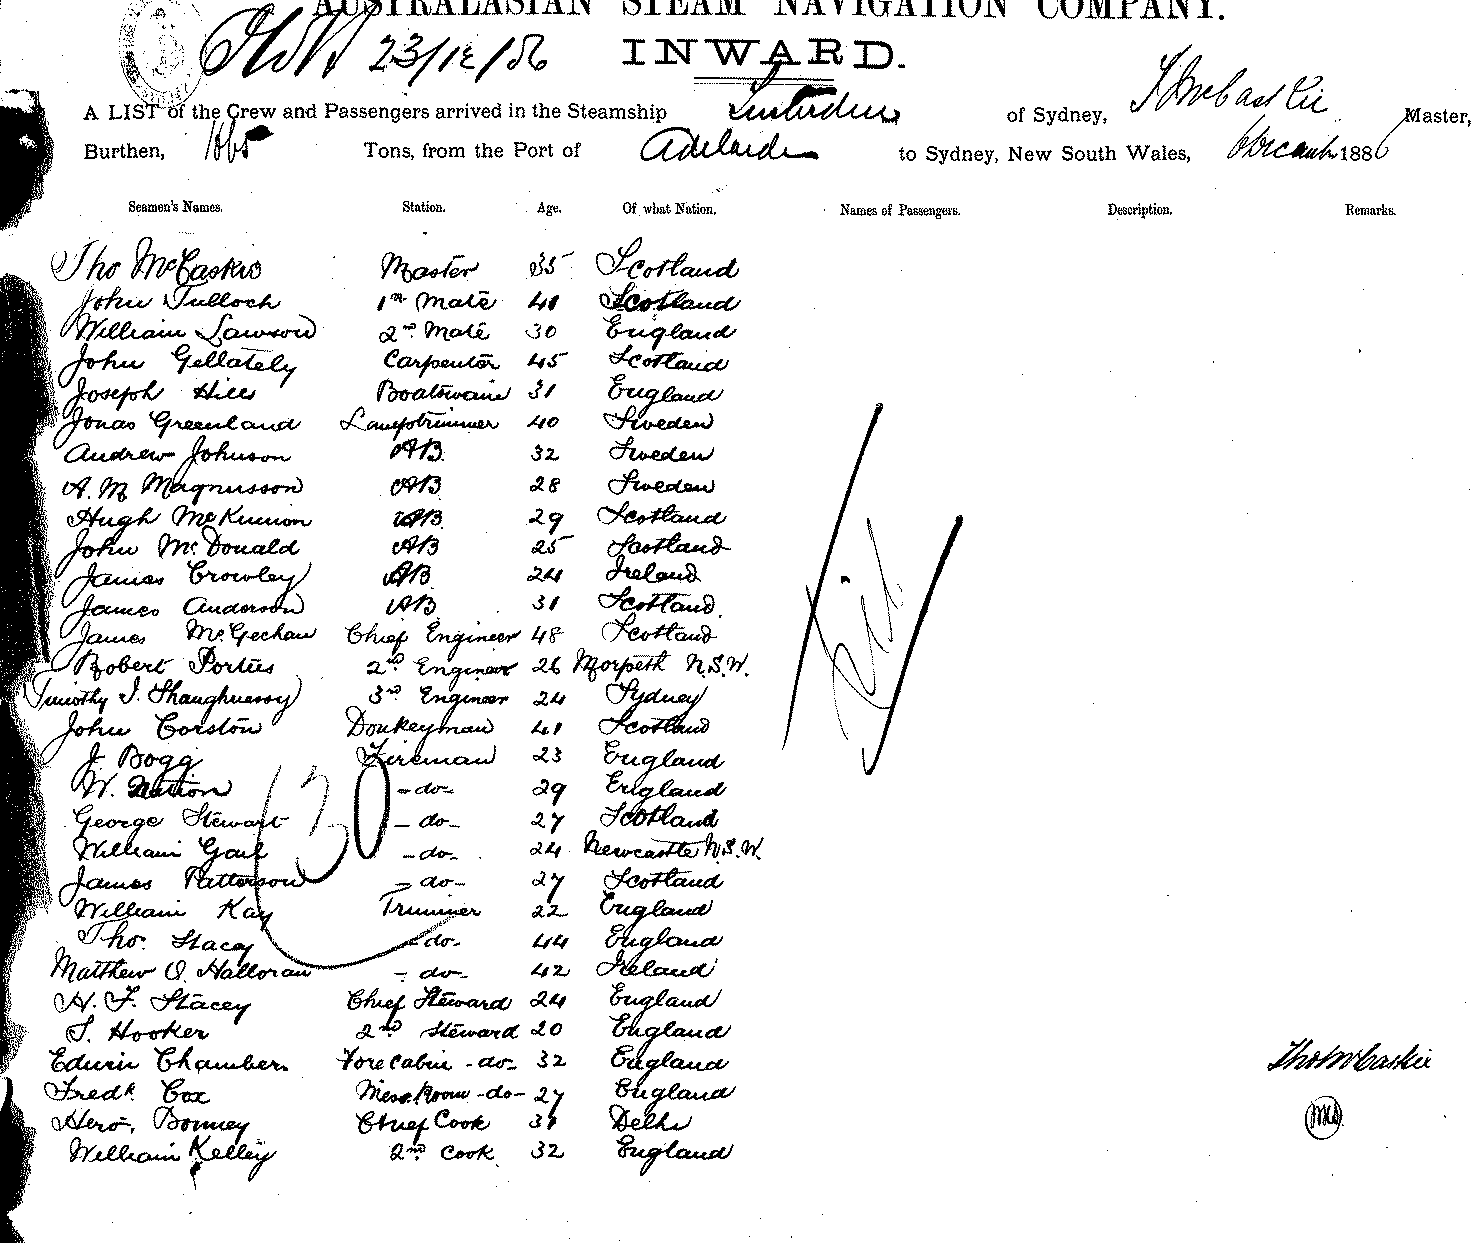 AUSTRALASIAN STEAM NAVIGATION COMPANY.
23/12/86 INWARD.
A LIST of the Crew and Passengers arrived in the Steamship of Sydney, T McCaskie Master,
Burthen, 1865 Tons, from the Port of Adelaide to Sydney, New South Wales, 1886
Seamen's Names. Station. Age. Of what Nation. Names of Passengers. Description. Remarks.
Tho McCaskie Master 35 Scotland
John Tulloch 1st Mate 41 Scotland
William Lawson 2nd Mate 30 England
John Gellately Carpenter 45 Scotland
Joseph Hills Boatswain 31 England
Jonas Greenland Lamptrimmer 40 Sweden
Andrew Johnson AB 32 Sweden
A. M Magnusson AB 28 Sweden
Hugh McKinnon AB 29 Scotland
John McDonald AB 25 Scotland
James Crowley AB 24 Ireland
James Anderson AB 31 Scotland
James McGechan Chief Engineer 48 Scotland
Robert Portus 2nd Engineer 26 Morpeth N.S.W.
Timothy I. Shaughnessy 3rd Engineer 24 Sydney
John Corston Donkeyman 41 Scotland
J. Bogg Fireman 23 England
W. Nation -do- 29 England
George Stewart -do- 27 Scotland
William Gail -do- 24 Newcastle N.S.W.
James Patterson -do- 27 Scotland
William Kay Trimmer 22 England
Tho. Stacey -do- 44 England
Matthew O. Halloran -do- 42 Ireland
H. F. Stacey Chief Steward 24 England
S. Hooker 2nd Steward 20 England
Edwin Chambers Forecabin -do- 32 England
Fredk Cox Mess Room -do- 27 England
Bonney Chief Cook 31 Delhi
William Kelley 2nd Cook 32 England
30
Tho McCaskie